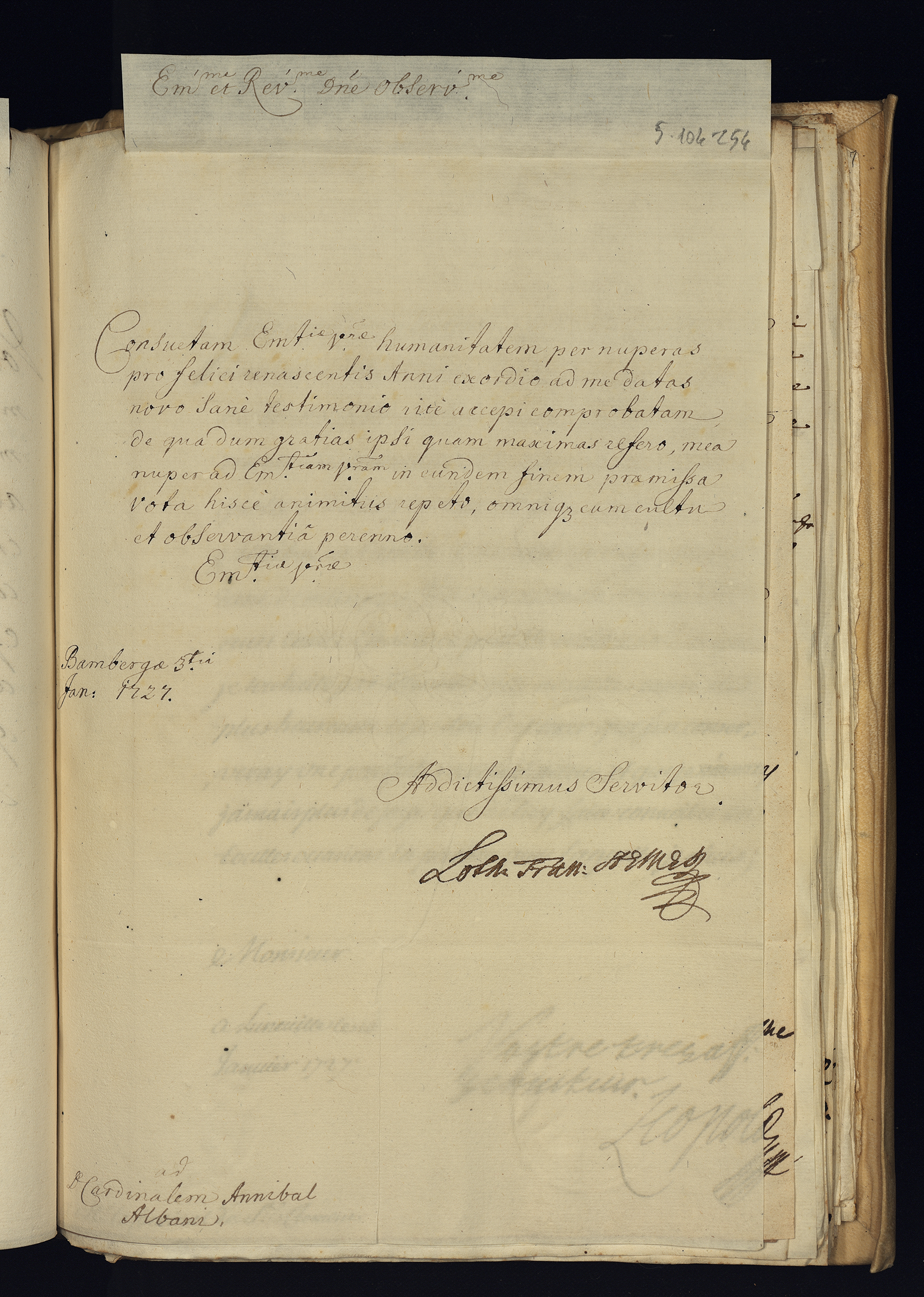 Em̃me et Rev̄.me Dñe Observ̄.me
5-104-254
Consuetam Em.tiæ V.ræ humanitatem per nuperas
pro felici renascentis Anni exordio ad me datas
novo sanè testimonio ritè accepi comprobatam
de qua dum gratias ipsi quam maximas refero, mea
nuper ad Em.tiam V.ram in eundem finem præmissa
vota hisce animitus repeto, omniq3 cum cultu
et observantiâ perenno.
Em.tiæ V.ræ
Bambergæ 3.tii
Jan: 1727.
Addictissimus Servitor
Loth: Fran:
ad
D. Cardinalem Annibal
Albani.